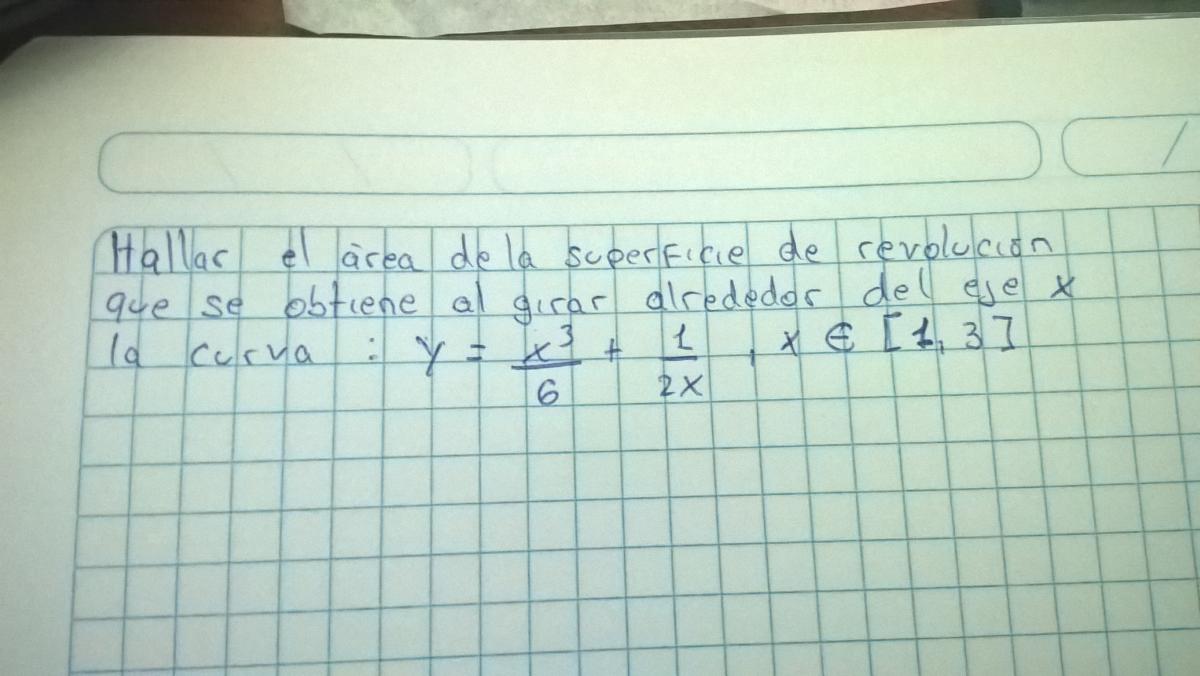 Hallar el área de la superficie de revolución
que se obtiene al girar alrededor del eje x
la curva : y = x³/6 + 1/2x , x ∈ [1, 3]